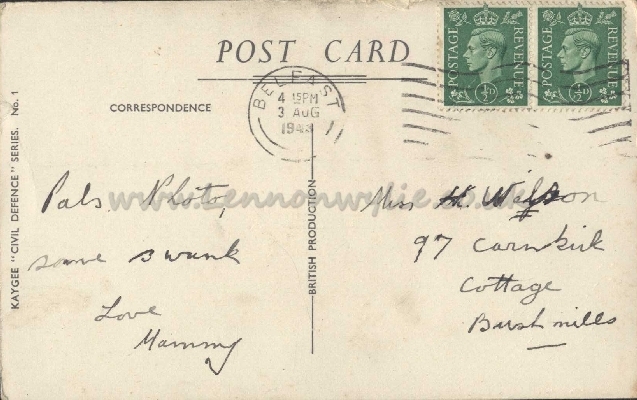 POST CARD
CORRESPONDENCE
KAYGEE "CIVIL DEFENCE" SERIES. No. 1
BRITISH PRODUCTION
BELFAST
4 15PM
3 AUG
1943
POSTAGE REVENUE
½D
POSTAGE REVENUE
½D
www.lennonwylie.co.uk
Pals Photo,
some swank
Love
Mammy
Miss H. Wilson
97 Carnkirk
Cottage
Bushmills